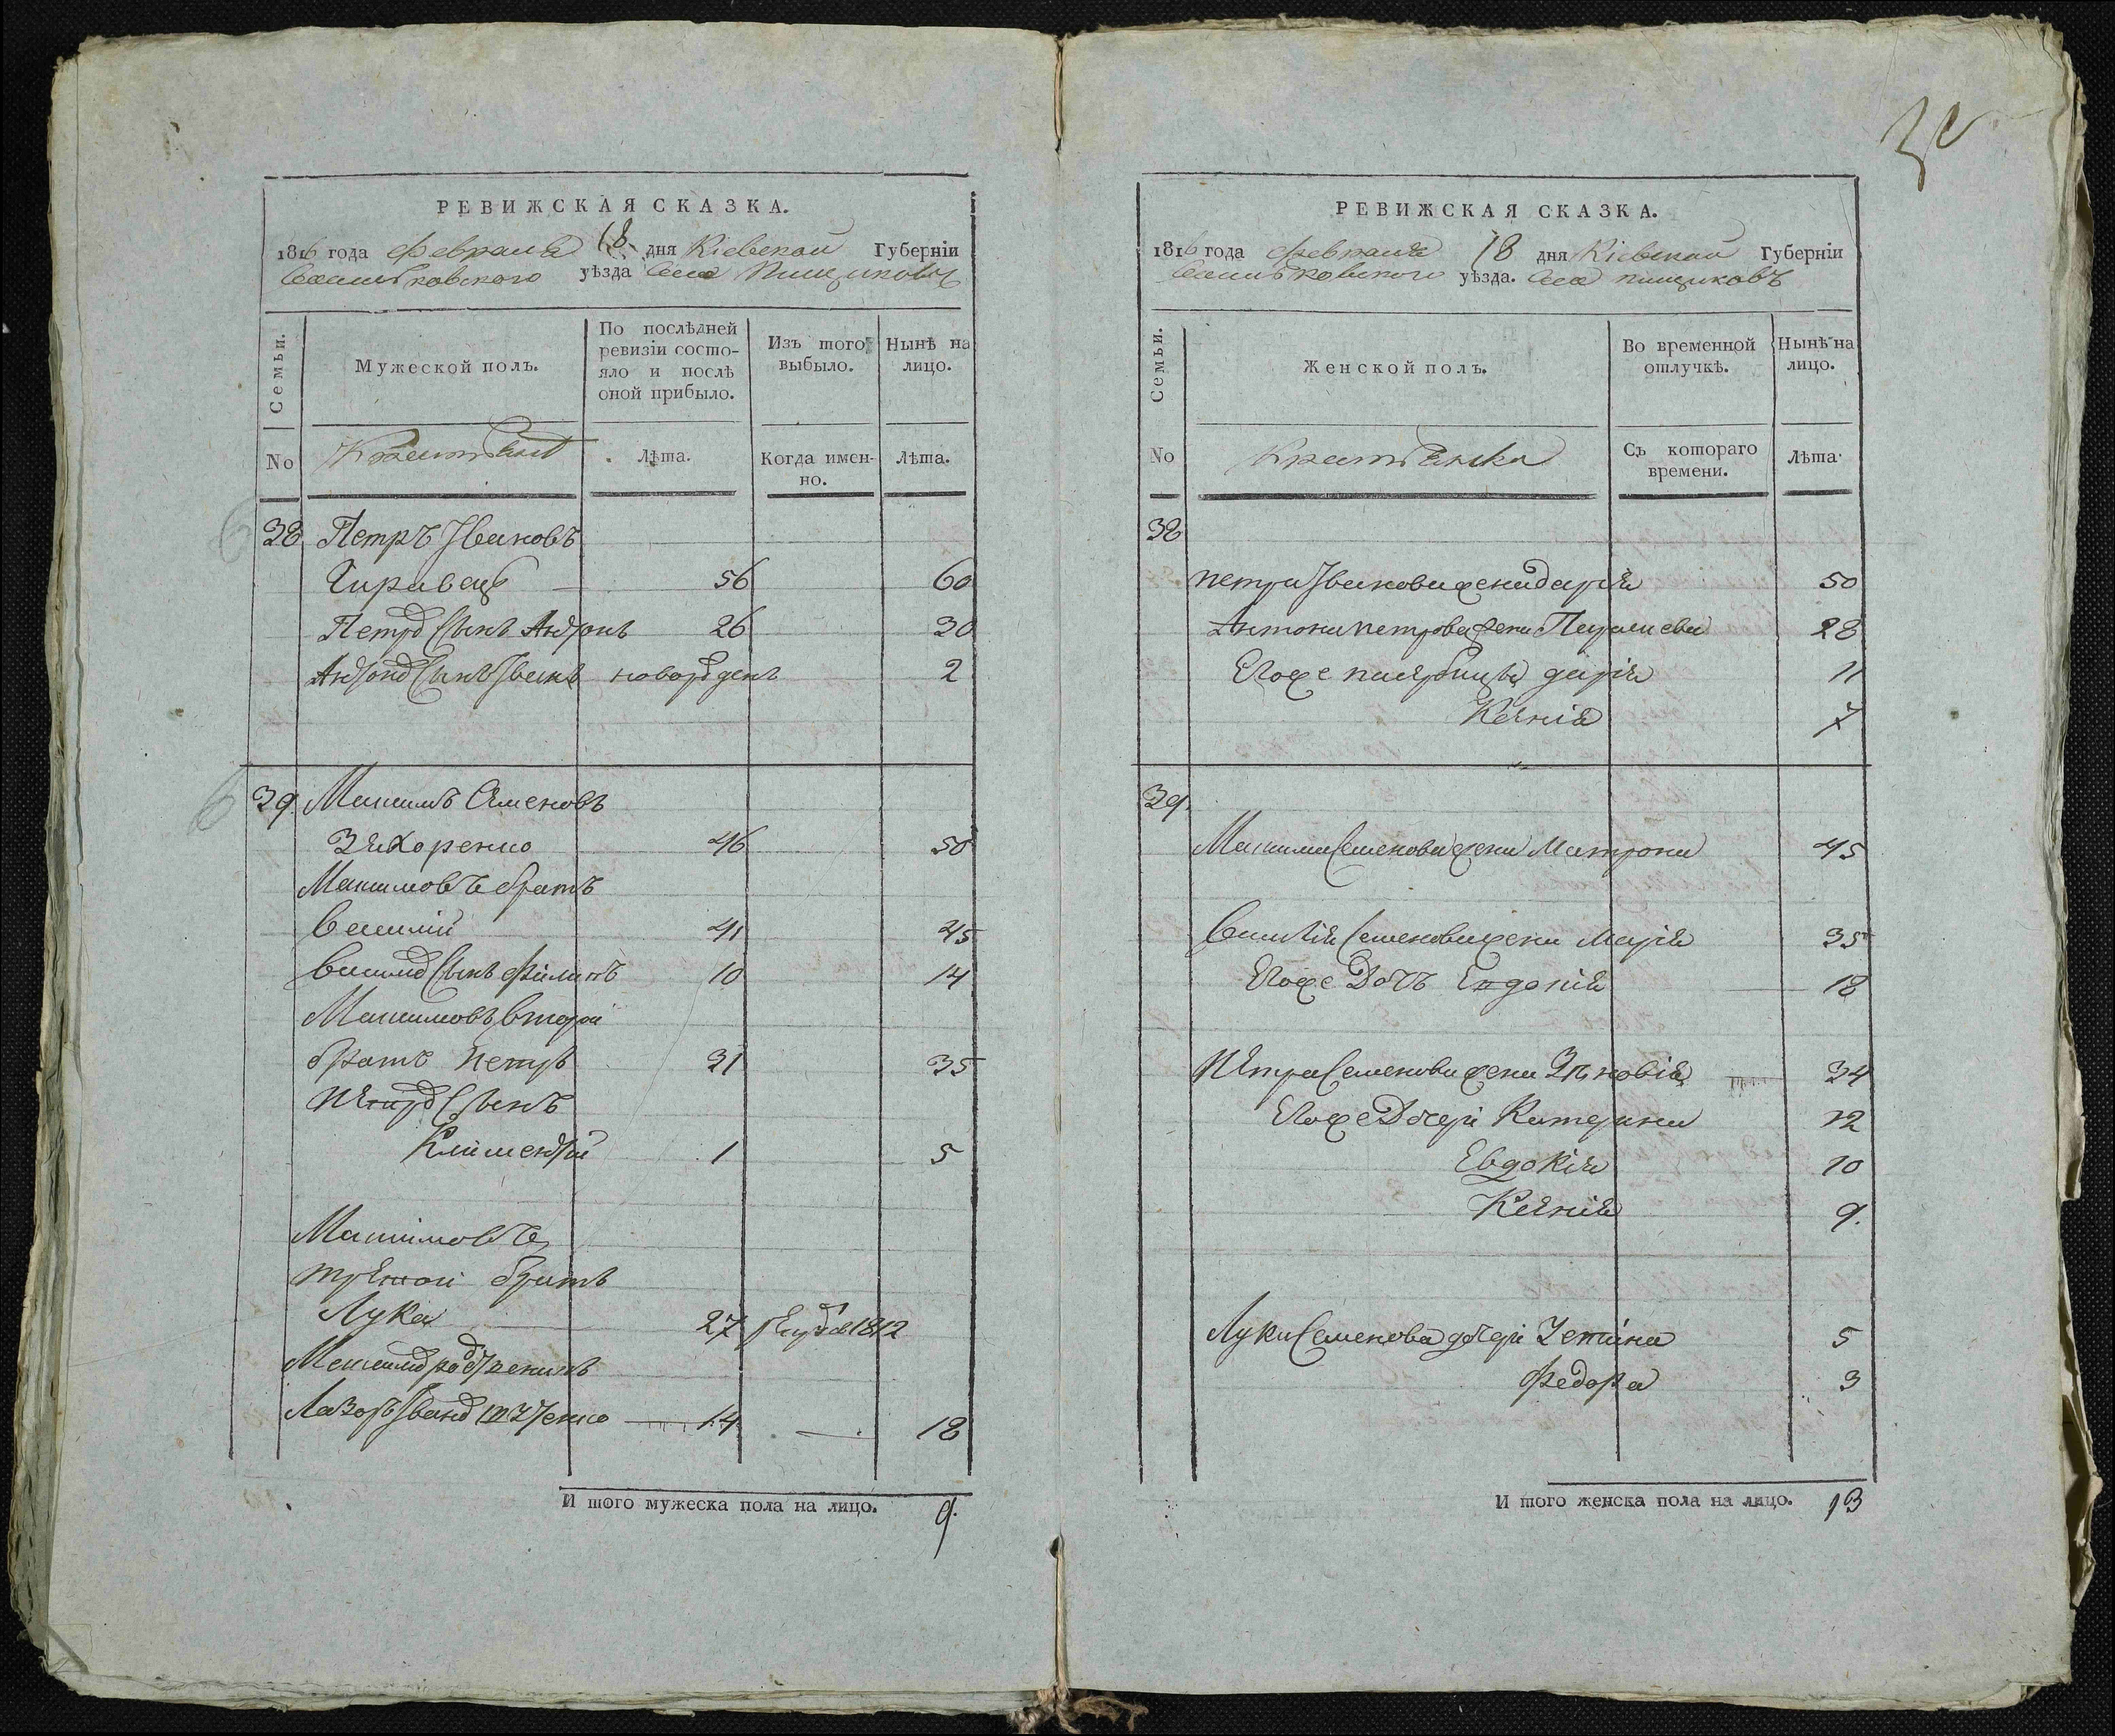 РЕВИЖСКАЯ СКАЗКА.
1816 года февраля 18 дня Кіевской Губерніи
Васильковского уѣзда Села Пищиковъ
Семьи.
Мужеской полъ.
По послѣдней ревизіи состо-
яло и послѣ
оной прибыло.
Изъ того
выбыло.
Нынѣ на
лицо.
No
Лѣта.
Когда имен-
но.
Лѣта.
38 Петръ Ивановъ
56 60
Петра Сынъ Антонъ 26 30
Антона Сынъ Иванъ новорожденъ 2
39 Максимъ Семеновъ
Захоренко 46 50
Максимовъ братъ
Василий 41 45
Василия Сынъ Филипъ 10 14
Максимовъ второй
братъ Петръ 31 35
Петра Сынъ
Климентій 1 5
Максимовъ
третой братъ
Лука 27 1812
Максима
Лазоръ 14 18
И того мужеска пола на лицо. 9.
РЕВИЖСКАЯ СКАЗКА.
1816 года февраля 18 дня Кіевской Губерніи
Васильковского уѣзда. Села пищиковъ
Семьи.
Женской полъ.
Во временной
отлучкѣ.
Нынѣ на
лицо.
No
Съ котораго
времени.
Лѣта.
38
петра Иванова жена дарія 50
Антона петрова жена 28
Егоже падчерицы дарія 11
Ксенія 7
39.
Максима Семенова жена Матрона 45
Василія Семенова жена Марія 35
Егоже Дочь Евдокія 18
Петра Семенова жена Зѣновія 34
Егоже Дочери Катерина 12
Евдокія 10
Ксенія 9.
Луки Семенова дочери 5
Федора 3
И того женска пола на лицо. 13